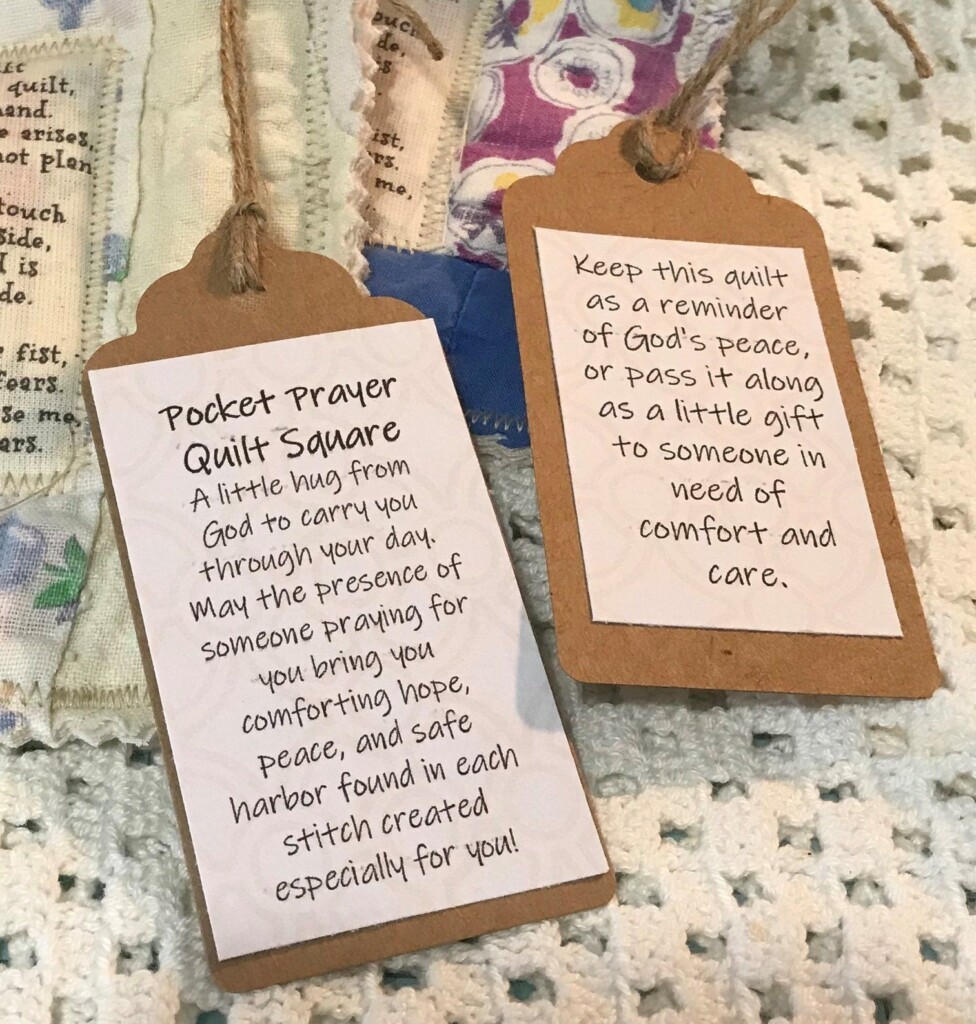 quilt,
hand.
arises,
not plan
touch
side,
is
fist,
fears.
me,
de,
me,
Pocket Prayer
Quilt Square
A little hug from
God to carry you
through your day.
May the presence of
someone praying for
you bring you
comforting hope,
peace, and safe
harbor found in each
stitch created
especially for you!
Keep this quilt
as a reminder
of God's peace,
or pass it along
as a little gift
to someone in
need of
comfort and
care.